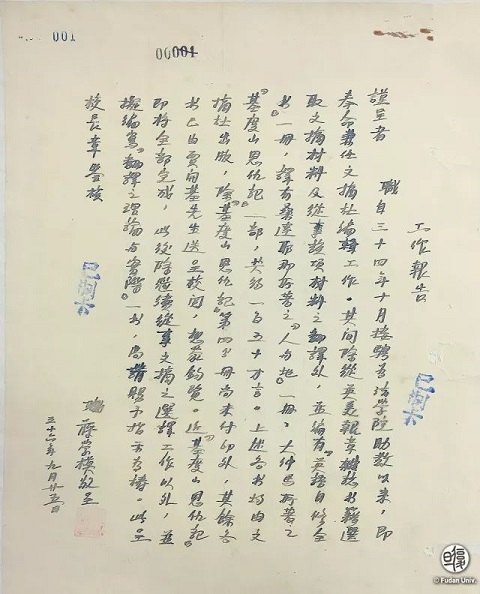 001
00001
工作報告
謹呈者 職自三十四年十月接聘為法學院助教以來,即
奉命兼任文摘社編輯工作。其間除從英美報章雜誌書籍選
取文摘材料及從事該項材料之翻譯外,並編有『英語自修全
書』一冊,譯有所著之『人與地』一冊,大仲馬所著之
『基度山恩仇記』一部,共約一百五十万言。上述各書均由文
摘社出版,除『基度山恩仇記』第四分冊尚未付印外,其餘各
書已由賈開基先生送呈校閱,想蒙鈞覽。近『基度山恩仇記』
即將全部完成,此後除繼續從事文摘之選譯工作以外,並
擬編寫『翻譯之理論與實際』一書,尚請賜予指示為禱。此呈
校長章鑒核
職 蔣學模敬呈
三十六年九月廿五日
© Fudan Univ.